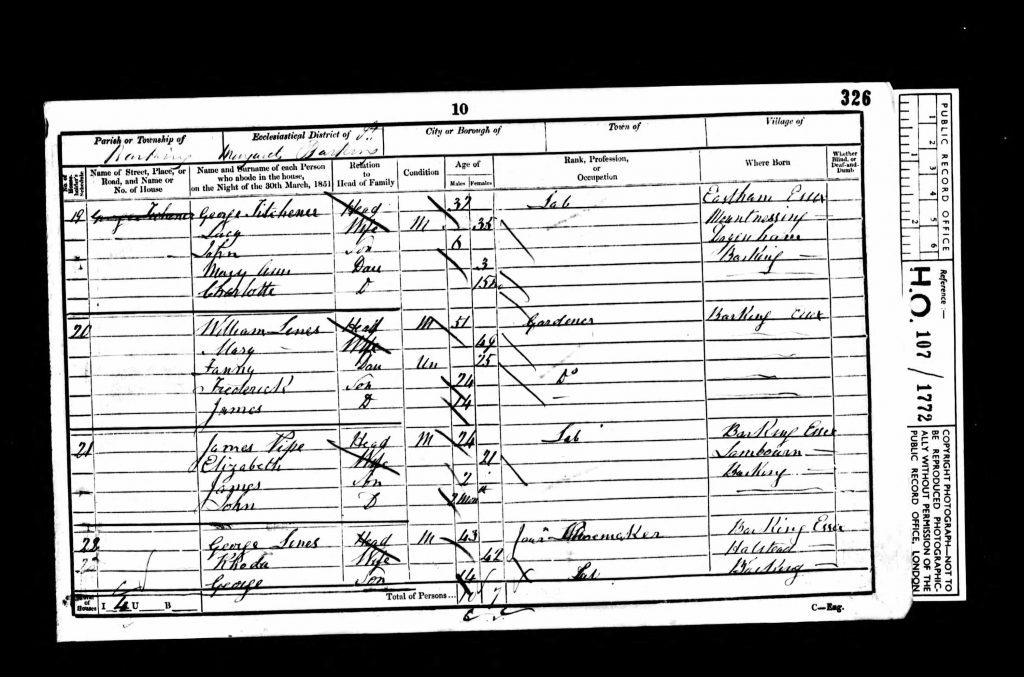 10
326
Parish or Township of
Ecclesiastical District of St
City or Borough of
Town of
Village of
Barking
Margarets Barking
No. of House-holder's Schedule
Name of Street, Place, or Road, and Name or No. of House
Name and Surname of each Person who abode in the house, on the Night of the 30th March, 1851
Relation to Head of Family
Condition
Age of
Males Females
Rank, Profession, or Occupation
Where Born
Whether Blind, or Deaf-and-Dumb
19 George Fitchener Head 37 Lab Eastham Essex
Lucy Wife M 35 Mountnessing
John Son 6 Dagenham
Mary Ann Dau 3 Barking
Charlotte D
20 William Lines Head M 51 Gardener Barking Essex
Mary Wife 49
Fanny Dau Un 25
Frederick Son 24 Do
James D 14
21 James Pipe Head M 24 Lab Barking Essex
Elizabeth Wife 21 Lambourn
James Son 2 Barking
John D 2 Mon
22 George Lines Head M 43 Jour Shoemaker Barking Essex
Rhoda Wife 42 Halstead
George Son 14 Lab Barking
Total of Houses I 4 U B
Total of Persons... 10 7
C—Eng.
PUBLIC RECORD OFFICE
1 2 3 4 5 6
Reference:—
H.O. 107 / 1772
COPYRIGHT PHOTOGRAPH—NOT TO BE REPRODUCED PHOTOGRAPHICALLY WITHOUT PERMISSION OF THE PUBLIC RECORD OFFICE, LONDON